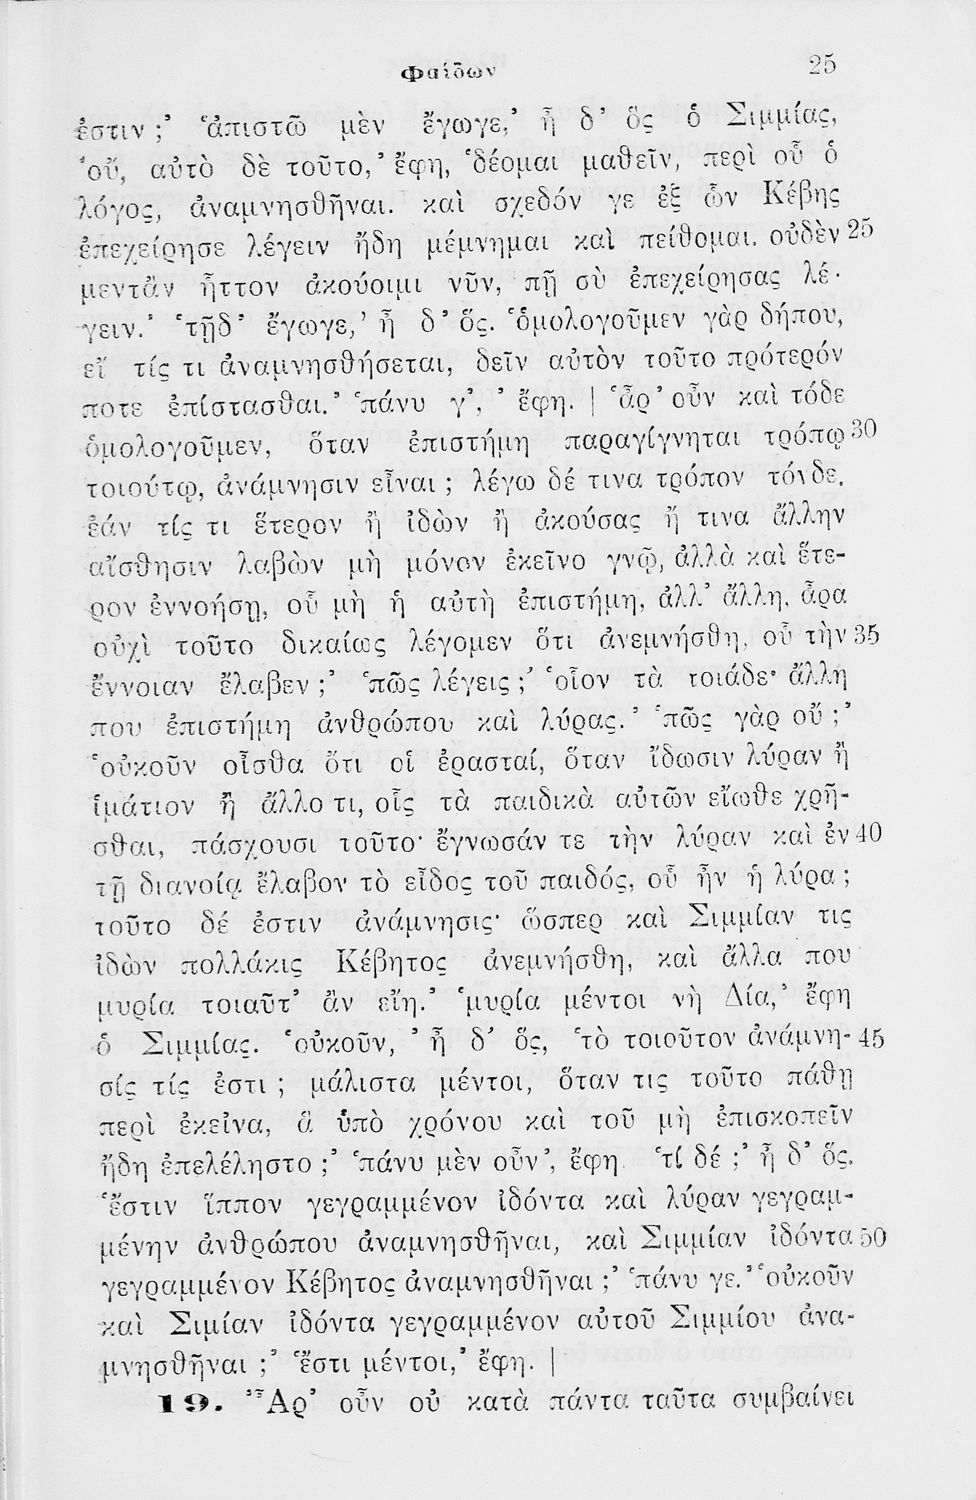 Φαίδων 25
ἐστιν ;’ ‘ἀπιστῶ μὲν ἔγωγε,’ ἦ δ’ ὃς ὁ Σιμμίας,
‘οὔ, αὐτὸ δὲ τοῦτο,’ ἔφη, ‘δέομαι μαθεῖν, περὶ οὗ ὁ
λόγος, ἀναμνησθῆναι. καὶ σχεδόν γε ἐξ ὧν Κέβης
ἐπεχείρησε λέγειν ἤδη μέμνημαι καὶ πείθομαι. οὐδὲν 25
μεντἂν ἧττον ἀκούοιμι νῦν, πῇ σὺ ἐπεχείρησας λέ-
γειν.’ ‘τῇδ’ ἔγωγε,’ ἦ δ’ ὅς. ‘ὁμολογοῦμεν γὰρ δήπου,
εἴ τίς τι ἀναμνησθήσεται, δεῖν αὐτὸν τοῦτο πρότερόν
ποτε ἐπίστασθαι.’ ‘πάνυ γ’,’ ἔφη. | ‘ἆρ’ οὖν καὶ τόδε
ὁμολογοῦμεν, ὅταν ἐπιστήμη παραγίγνηται τρόπῳ 30
τοιούτῳ, ἀνάμνησιν εἶναι ; λέγω δέ τινα τρόπον τόνδε.
ἐάν τίς τι ἕτερον ἢ ἰδὼν ἢ ἀκούσας ἤ τινα ἄλλην
αἴσθησιν λαβὼν μὴ μόνον ἐκεῖνο γνῷ, ἀλλὰ καὶ ἕτε-
ρον ἐννοήσῃ, οὗ μὴ ἡ αὐτὴ ἐπιστήμη, ἀλλ’ ἄλλη, ἆρα
οὐχὶ τοῦτο δικαίως λέγομεν ὅτι ἀνεμνήσθη, οὗ τὴν 35
ἔννοιαν ἔλαβεν ;’ ‘πῶς λέγεις ;’ ‘οἷον τὰ τοιάδε· ἄλλη
που ἐπιστήμη ἀνθρώπου καὶ λύρας.’ ‘πῶς γὰρ οὔ ;’
‘οὐκοῦν οἶσθα ὅτι οἱ ἐρασταί, ὅταν ἴδωσιν λύραν ἢ
ἱμάτιον ἢ ἄλλο τι, οἷς τὰ παιδικὰ αὐτῶν εἴωθε χρῆ-
σθαι, πάσχουσι τοῦτο· ἔγνωσάν τε τὴν λύραν καὶ ἐν 40
τῇ διανοίᾳ ἔλαβον τὸ εἶδος τοῦ παιδός, οὗ ἦν ἡ λύρα ;
τοῦτο δέ ἐστιν ἀνάμνησις· ὥσπερ καὶ Σιμμίαν τις
ἰδὼν πολλάκις Κέβητος ἀνεμνήσθη, καὶ ἄλλα που
μυρία τοιαῦτ’ ἂν εἴη.’ ‘μυρία μέντοι νὴ Δία,’ ἔφη
ὁ Σιμμίας. ‘οὐκοῦν,’ ἦ δ’ ὅς, ‘τὸ τοιοῦτον ἀνάμνη- 45
σίς τίς ἐστι ; μάλιστα μέντοι, ὅταν τις τοῦτο πάθῃ
περὶ ἐκεῖνα, ἃ ὑπὸ χρόνου καὶ τοῦ μὴ ἐπισκοπεῖν
ἤδη ἐπελέληστο ;’ ‘πάνυ μὲν οὖν’, ἔφη. ‘τί δέ ;’ ἦ δ’ ὅς.
‘ἔστιν ἵππον γεγραμμένον ἰδόντα καὶ λύραν γεγραμ-
μένην ἀνθρώπου ἀναμνησθῆναι, καὶ Σιμμίαν ἰδόντα 50
γεγραμμένον Κέβητος ἀναμνησθῆναι ;’ ‘πάνυ γε.’ ‘οὐκοῦν
καὶ Σιμίαν ἰδόντα γεγραμμένον αὐτοῦ Σιμμίου ἀνα-
μνησθῆναι ;’ ‘ἔστι μέντοι,’ ἔφη. |
19. ‘Ἆρ’ οὖν οὐ κατὰ πάντα ταῦτα συμβαίνει